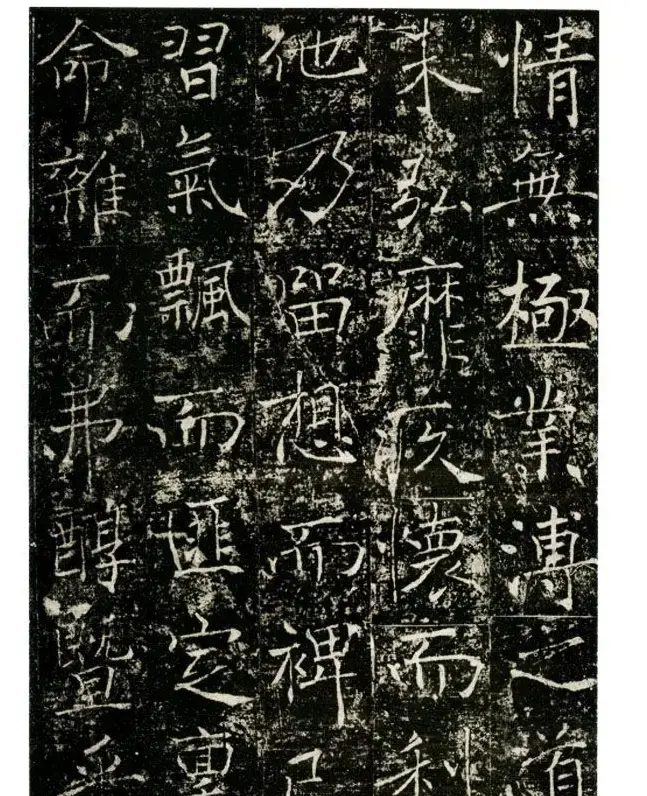 情無極業溥之道
未弘靡疚懷而利
他乃留想而裨己
習氣飄而匪定
命雜而弗醇暨乎